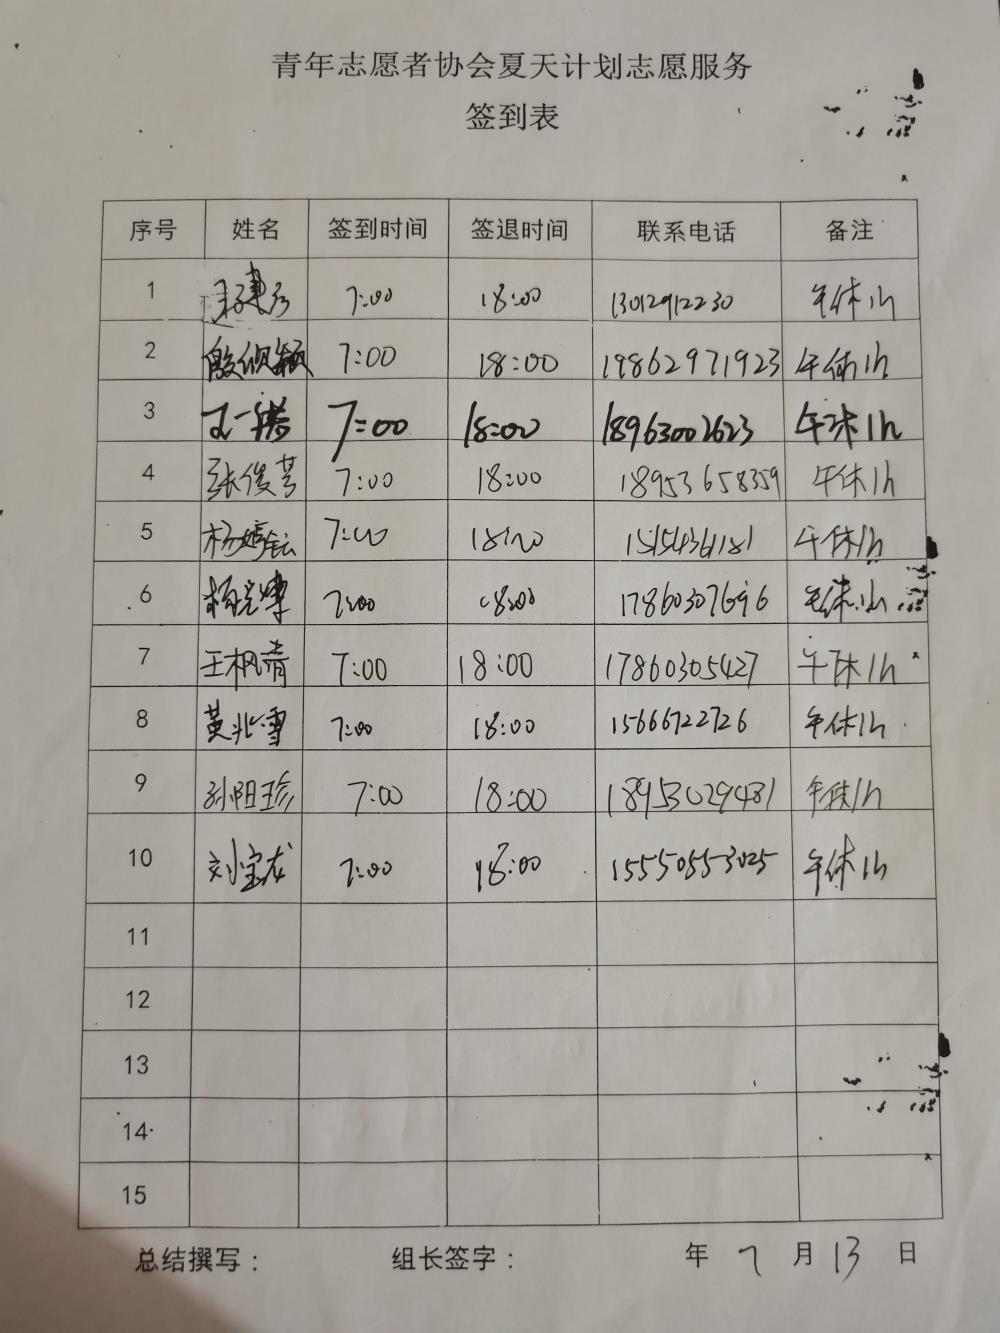 青年志愿者协会夏天计划志愿服务
签到表
序号 姓名 签到时间 签退时间 联系电话 备注
1 7:00 18:00 13012912230 午休1h
2 7:00 18:00 19862971923 午休1h
3 7:00 18:00 18963002623 午休1h
4 张俊苓 7:00 18:00 18953658359 午休1h
5 杨婷 7:00 18:00 15154361181 午休1h
6 杨 7:00 18:00 17860307696 午休1h
7 王枫清 7:00 18:00 17860305427 午休1h
8 黄兆雪 7:00 18:00 15666722726 午休1h
9 孙阳珍 7:00 18:00 18953029481 午休1h
10 刘宝龙 7:00 18:00 15550553025 午休1h
11
12
13
14
15
总结撰写： 组长签字： 年 7 月 13 日